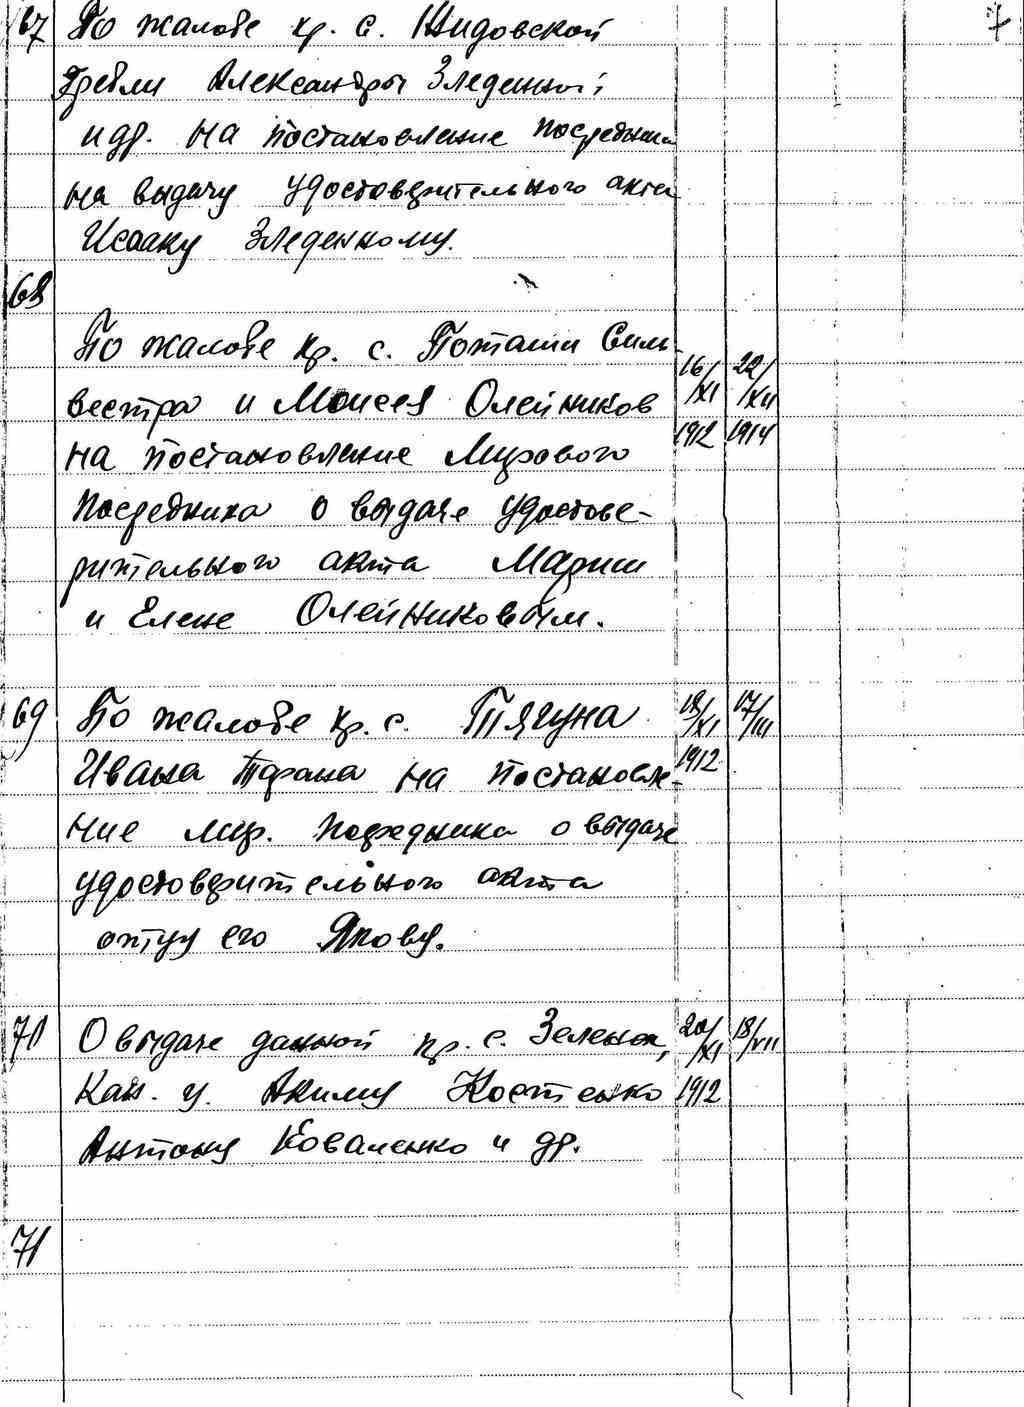 67 По жалобе кр. с. Жидовской 7
Гребли Александры Зледенной
и др. на постановление посредника
на выдачу удостоверительного акта
Исааку Зледенному.
68
По жалобе кр. с. Поташи Силь-
вестра и Моисея Олейников 16/XI 22/XII
на постановление Мирового 1912 1914
посредника о выдаче удостове-
рительного акта Марии
и Елене Олейниковым.
69 По жалобе кр. с. Тягуна 18/XI 17/III
Ивана Тарана на постановле- 1912
ние мир. посредника о выдаче
удостоверительного акта
отцу его Якову.
70 О выдаче данной кр. с. Зеленок, 20/XI 18/VII
Кан. у. Акиму Костенко 1912
Антону Коваленко и др.
71